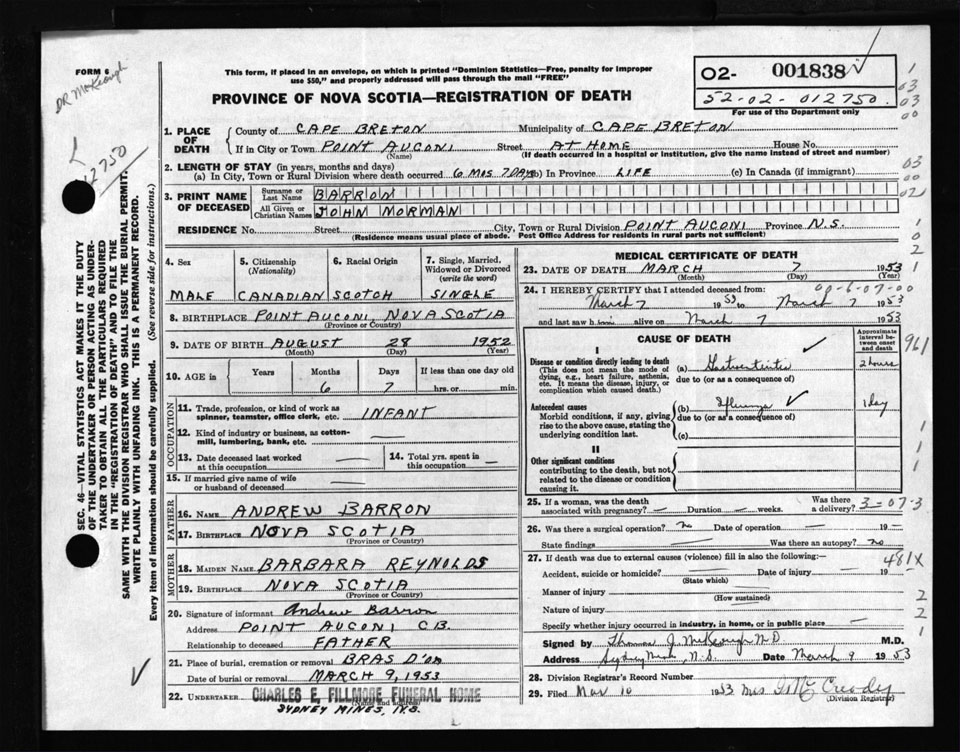 FORM 6
DR McKeough
This form, if placed in an envelope, on which is printed "Dominion Statistics—Free, penalty for improper
use $50," and properly addressed will pass through the mail "FREE"
02- 001838
52-02-012750
For use of the Department only
PROVINCE OF NOVA SCOTIA—REGISTRATION OF DEATH
12750
1. PLACE OF DEATH
County of CAPE BRETON Municipality of CAPE BRETON
If in City or Town POINT AUCONI Street AT HOME House No.
(Name) (If death occurred in a hospital or institution, give the name instead of street and number)
2. LENGTH OF STAY (in years, months and days)
(a) In City, Town or Rural Division where death occurred 6 MOS 7 DAYS (b) In Province LIFE (c) In Canada (if immigrant)
3. PRINT NAME OF DECEASED
Surname or Last Name BARRON
All Given or Christian Names JOHN MORMAN
RESIDENCE No. Street City, Town or Rural Division POINT AUCONI Province N.S.
(Residence means usual place of abode. Post Office Address for residents in rural parts not sufficient)
4. Sex
MALE
5. Citizenship (Nationality)
CANADIAN
6. Racial Origin
SCOTCH
7. Single, Married, Widowed or Divorced (write the word)
SINGLE
8. BIRTHPLACE POINT AUCONI, NOVA SCOTIA
(Province or Country)
9. DATE OF BIRTH AUGUST 28 1952
(Month) (Day) (Year)
10. AGE in Years Months Days If less than one day old
6 7 hrs. or min.
OCCUPATION
11. Trade, profession, or kind of work as spinner, teamster, office clerk, etc. INFANT
12. Kind of industry or business, as cotton-mill, lumbering, bank, etc. —
13. Date deceased last worked at this occupation —
14. Total yrs. spent in this occupation —
15. If married give name of wife or husband of deceased —
FATHER
16. NAME ANDREW BARRON
17. BIRTHPLACE NOVA SCOTIA
(Province or Country)
MOTHER
18. MAIDEN NAME BARBARA REYNOLDS
19. BIRTHPLACE NOVA SCOTIA
(Province or Country)
20. Signature of informant Andrew Barron
Address POINT AUCONI C.B.
Relationship to deceased FATHER
21. Place of burial, cremation or removal BRAS D'OR
Date of burial or removal MARCH 9, 1953
22. UNDERTAKER CHARLES E. FILLMORE FUNERAL HOME
(Name and address)
SYDNEY MINES, N.S.
MEDICAL CERTIFICATE OF DEATH
23. DATE OF DEATH MARCH 7 1953
(Month) (Day) (Year)
24. I HEREBY CERTIFY that I attended deceased from:
00-6-07-00
March 7 1953 to March 7 1953
and last saw him alive on March 7 1953
CAUSE OF DEATH
Approximate interval between onset and death
I
Disease or condition directly leading to death
(This does not mean the mode of dying, e.g., heart failure, asthenia, etc. It means the disease, injury, or complication which caused death.)
(a) Gastroenteritis 2 hours
due to (or as a consequence of)
Antecedent causes
Morbid conditions, if any, giving rise to the above cause, stating the underlying condition last.
(b) Influenza 1 day
due to (or as a consequence of)
(c)
II
Other significant conditions
contributing to the death, but not related to the disease or condition causing it.
25. If a woman, was the death associated with pregnancy? — Duration — weeks. Was there a delivery? 3-07-3
26. Was there a surgical operation? no Date of operation — 19 —
State findings Was there an autopsy? no
27. If death was due to external causes (violence) fill in also the following:—
481X
Accident, suicide or homicide? — Date of injury — 19
(State which)
Manner of injury
(How sustained)
Nature of injury
Specify whether injury occurred in industry, in home, or in public place —
Signed by Thomas J. McKeough M.D. M.D.
Address Sydney Mines, N.S. Date March 9 1953
28. Division Registrar's Record Number
29. Filed Mar 10 1953 Mrs McCready
(Division Registrar)
SEC. 46—VITAL STATISTICS ACT MAKES IT THE DUTY
OF THE UNDERTAKER OR PERSON ACTING AS UNDER-
TAKER TO OBTAIN ALL THE PARTICULARS REQUIRED
IN THE "REGISTRATION OF DEATH" AND TO FILE THE
SAME WITH THE DIVISION REGISTRAR WHO SHALL ISSUE THE BURIAL PERMIT.
WRITE PLAINLY WITH UNFADING INK. THIS IS A PERMANENT RECORD.
Every item of information should be carefully supplied. (See reverse side for instructions.)